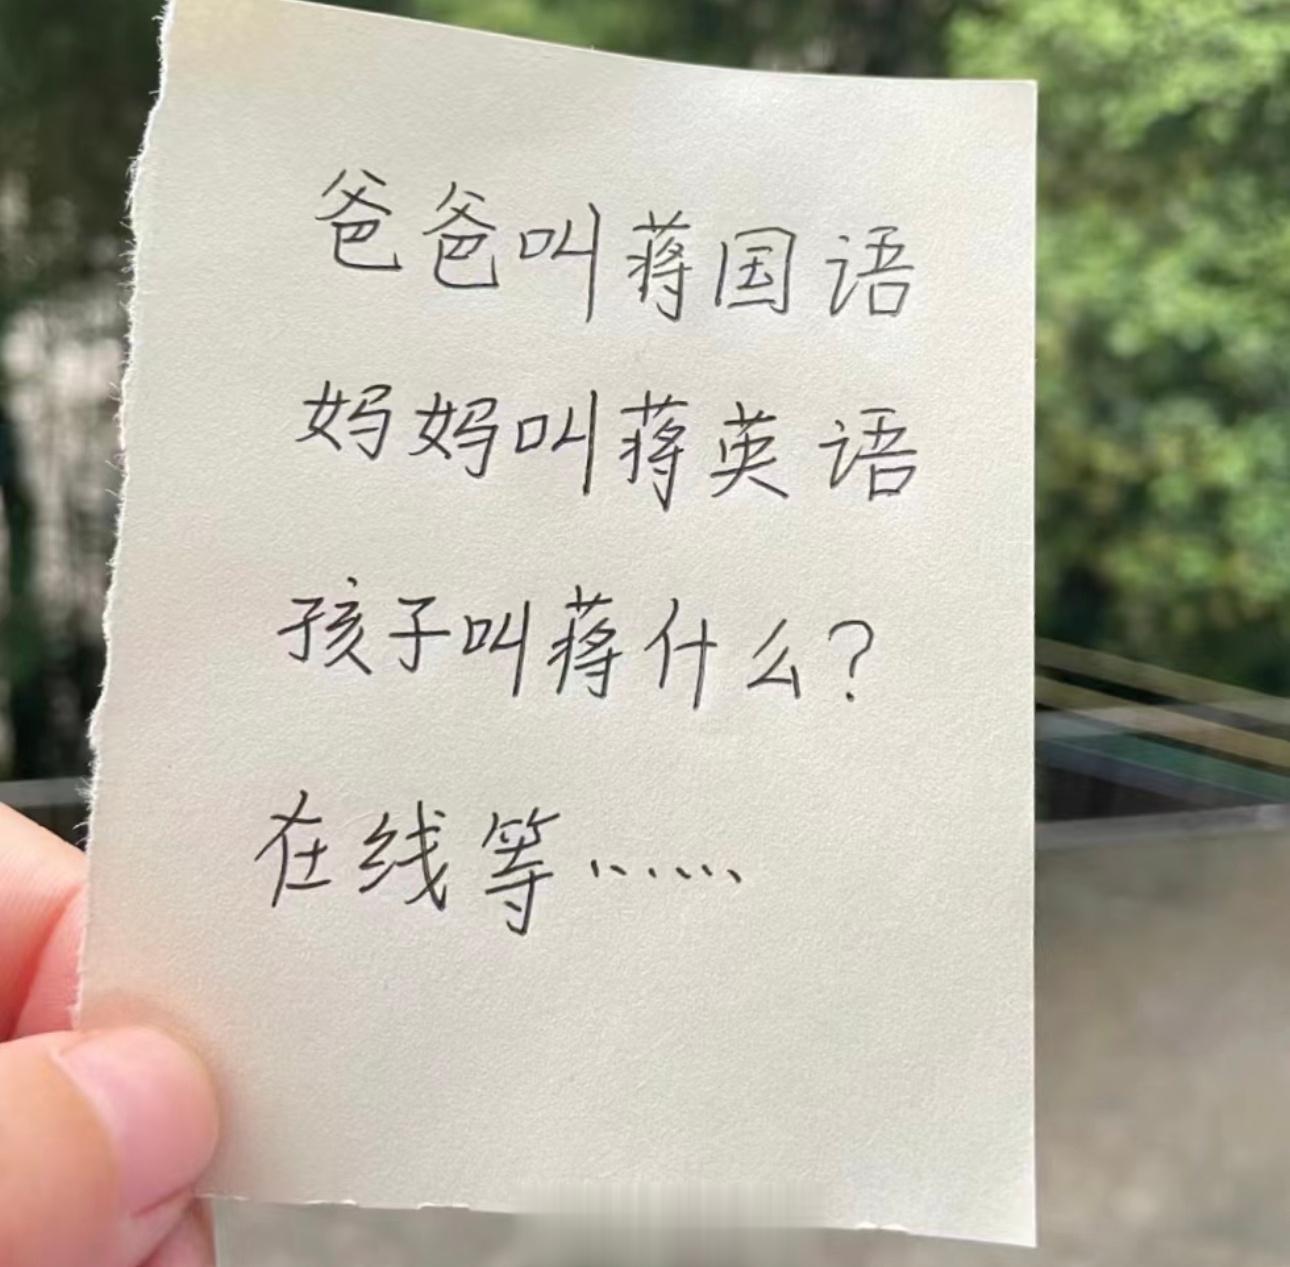 爸爸叫蒋国语
妈妈叫蒋英语
孩子叫蒋什么?
在线等……